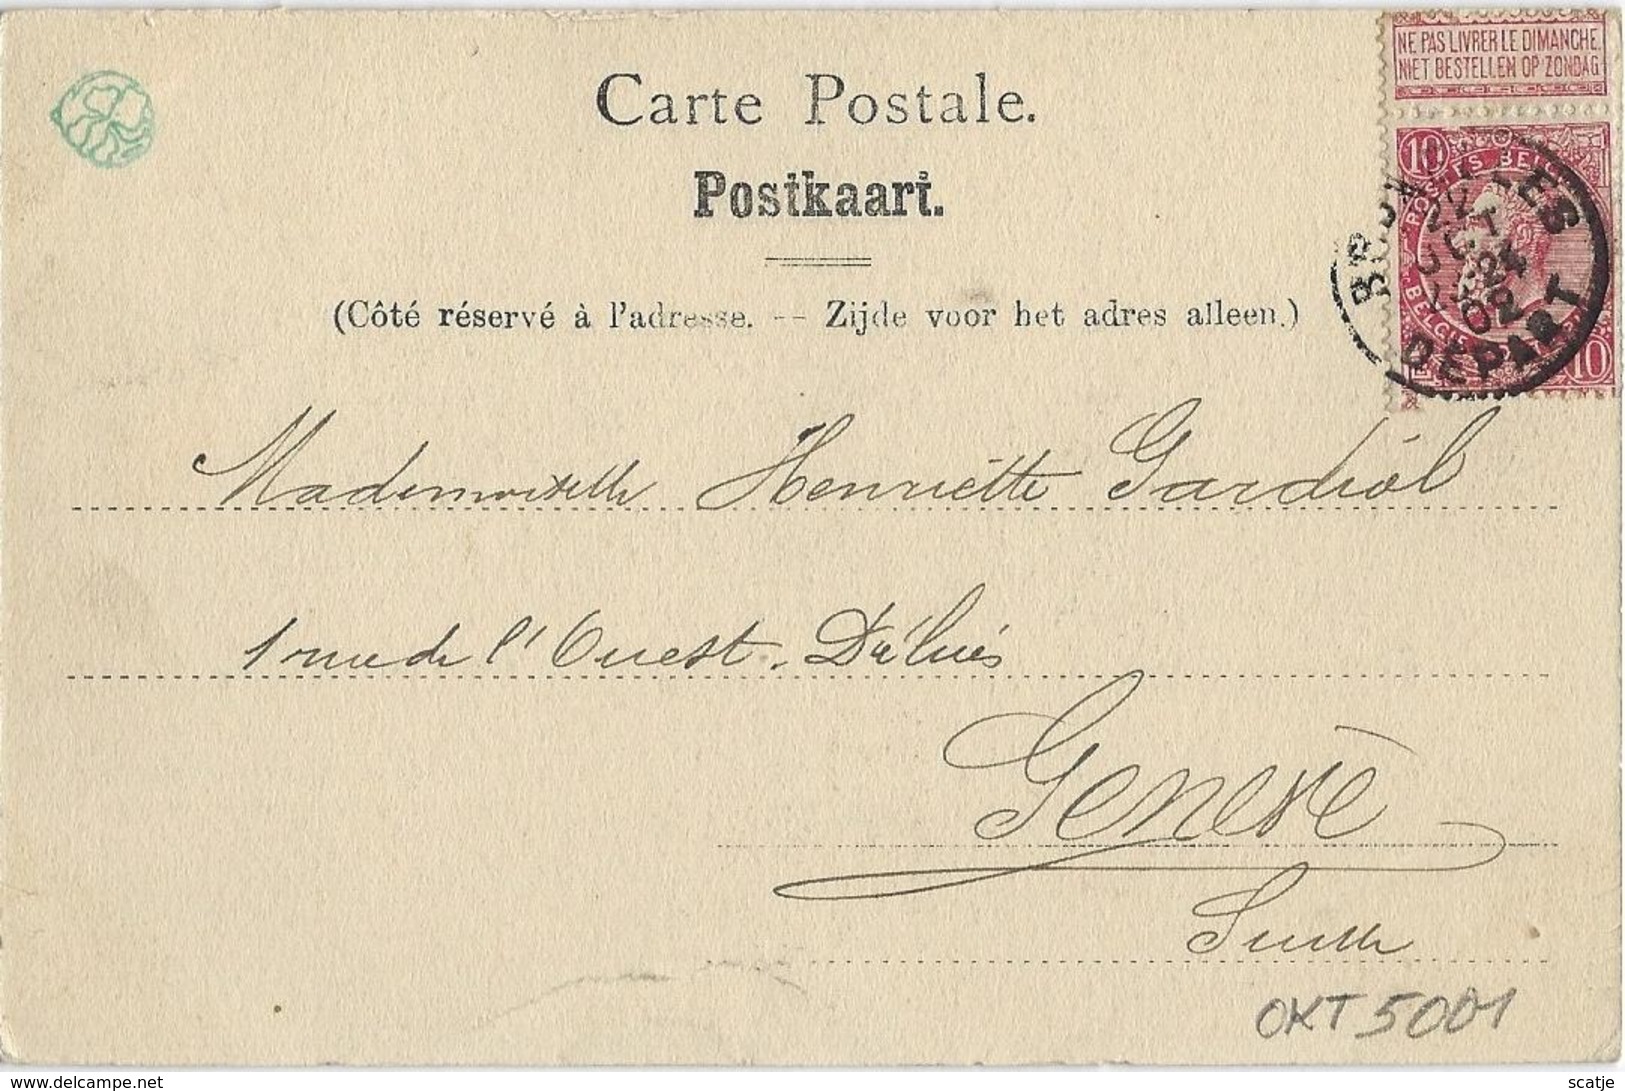 NE PAS LIVRER LE DIMANCHE.
NIET BESTELLEN OP ZONDAG
Carte Postale.
Postkaart.
(Côté réservé à l'adresse. -- Zijde voor het adres alleen.)
10
10
DEPART
Mademoiselle Henriette Gardiol
1 rue de l'Ouest.
Genève
Suisse
OKT 5001
delcampe.net
scatje